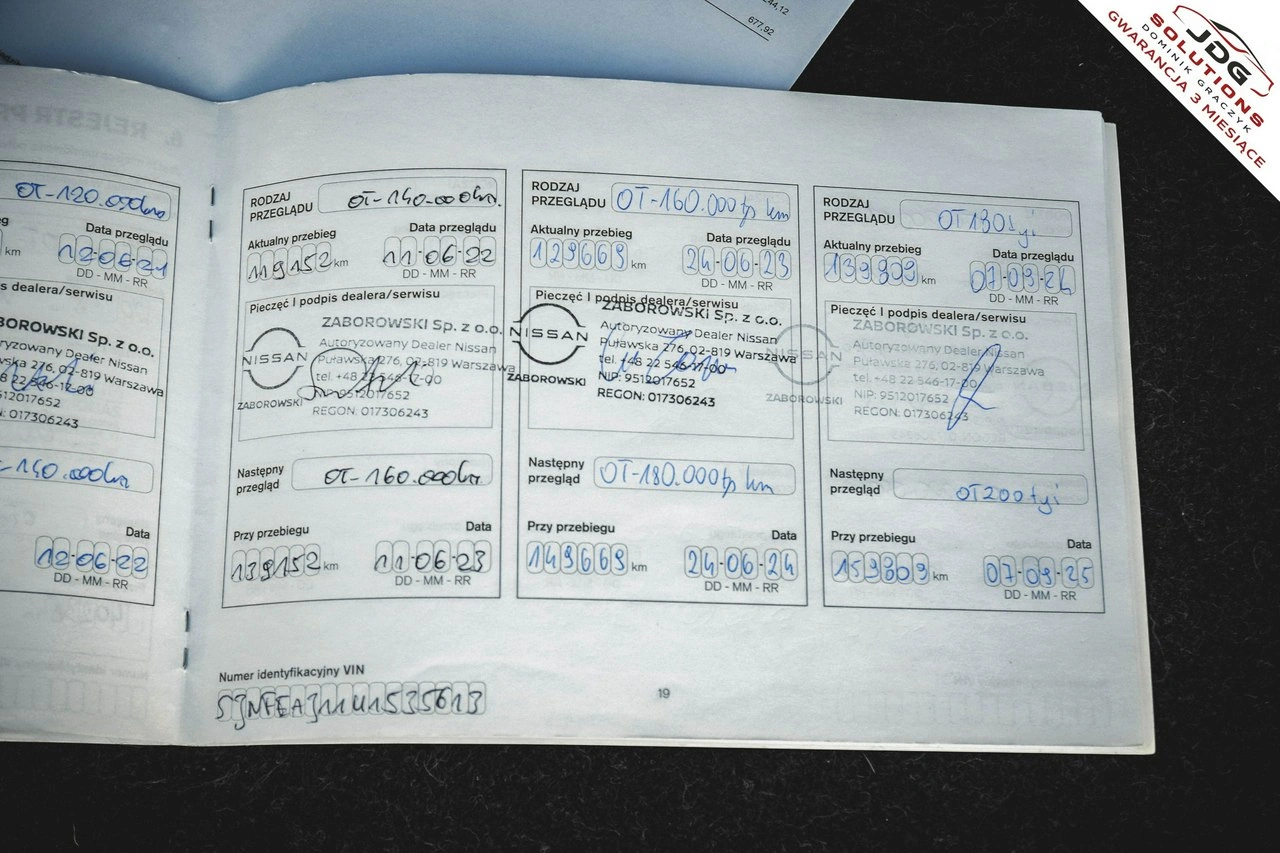 44,12
677,92
JDG
SOLUTIONS
DOMINIK GRACZYK
GWARANCJA 3 MIESIĄCE
OT-120.000km
km
Data przeglądu
12-06-21
DD - MM - RR
s dealera/serwisu
BOROWSKI Sp. z o.o.
oryzowany Dealer Nissan
wska 276, 02-819 Warszawa
8 22 546-17-00
9512017652
: 017306243
-140.000km
Data
12-06-22
DD - MM - RR
RODZAJ PRZEGLĄDU OT-140.000km.
Aktualny przebieg Data przeglądu
119152 km 11-06-22
DD - MM - RR
Pieczęć I podpis dealera/serwisu
ZABOROWSKI Sp. z o.o.
Autoryzowany Dealer Nissan
NISSAN
Puławska 276, 02-819 Warszawa
tel. +48 22 546-17-00
NIP: 9512017652
ZABOROWSKI
REGON: 017306243
Następny przegląd OT-160.000km
Przy przebiegu Data
139152 km 11-06-23
DD - MM - RR
RODZAJ PRZEGLĄDU OT-160.000tys km
Aktualny przebieg Data przeglądu
129669 km 24-06-23
DD - MM - RR
Pieczęć I podpis dealera/serwisu
ZABOROWSKI Sp. z o.o.
Autoryzowany Dealer Nissan
NISSAN
Puławska 276, 02-819 Warszawa
tel. +48 22 546-17-00
NIP: 9512017652
ZABOROWSKI
REGON: 017306243
Następny przegląd OT-180.000tp km
Przy przebiegu Data
149669 km 24-06-24
DD - MM - RR
RODZAJ PRZEGLĄDU OT
Aktualny przebieg Data przeglądu
139909 km 07-09-24
DD - MM - RR
Pieczęć I podpis dealera/serwisu
ZABOROWSKI Sp. z o.o.
Autoryzowany Dealer Nissan
NISSAN
Puławska 276, 02-819 Warszawa
tel. +48 22 546-17-00
NIP: 9512017652
ZABOROWSKI
REGON: 017306243
Następny przegląd OT 200 tyś
Przy przebiegu Data
159909 km 07-09-25
DD - MM - RR
Numer identyfikacyjny VIN
SJNFEAJ11U1535613
19